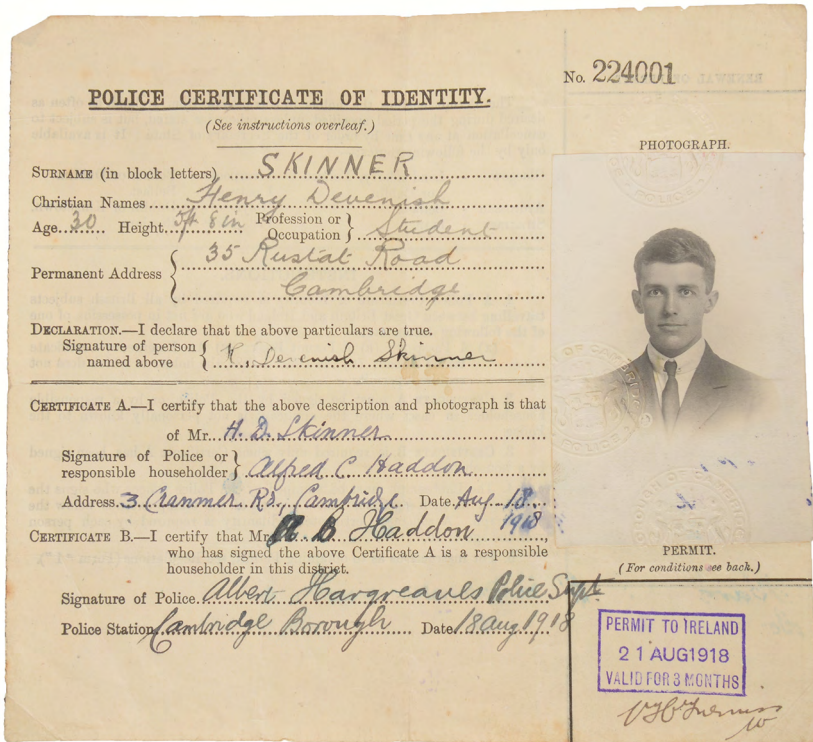 No. 224001
POLICE CERTIFICATE OF IDENTITY.
(See instructions overleaf.)
SURNAME (in block letters) SKINNER
Christian Names Henry Devenish
Age 30 Height 5ft 8in Profession or Occupation } Student
Permanent Address { 35 Rustat Road
Cambridge
DECLARATION.—I declare that the above particulars are true.
Signature of person named above { H. Devenish Skinner
CERTIFICATE A.—I certify that the above description and photograph is that
of Mr. H. D. Skinner
Signature of Police or responsible householder } Alfred C Haddon
Address 3 Cranmer Rd., Cambridge Date Aug. 18. 1918
CERTIFICATE B.—I certify that Mr. Haddon,
who has signed the above Certificate A is a responsible
householder in this district.
Signature of Police Albert Hargreaves Police Supt.
Police Station Cambridge Borough Date 18 Aug 1918
PHOTOGRAPH.
PERMIT.
(For conditions see back.)
PERMIT TO IRELAND
21 AUG 1918
VALID FOR 3 MONTHS